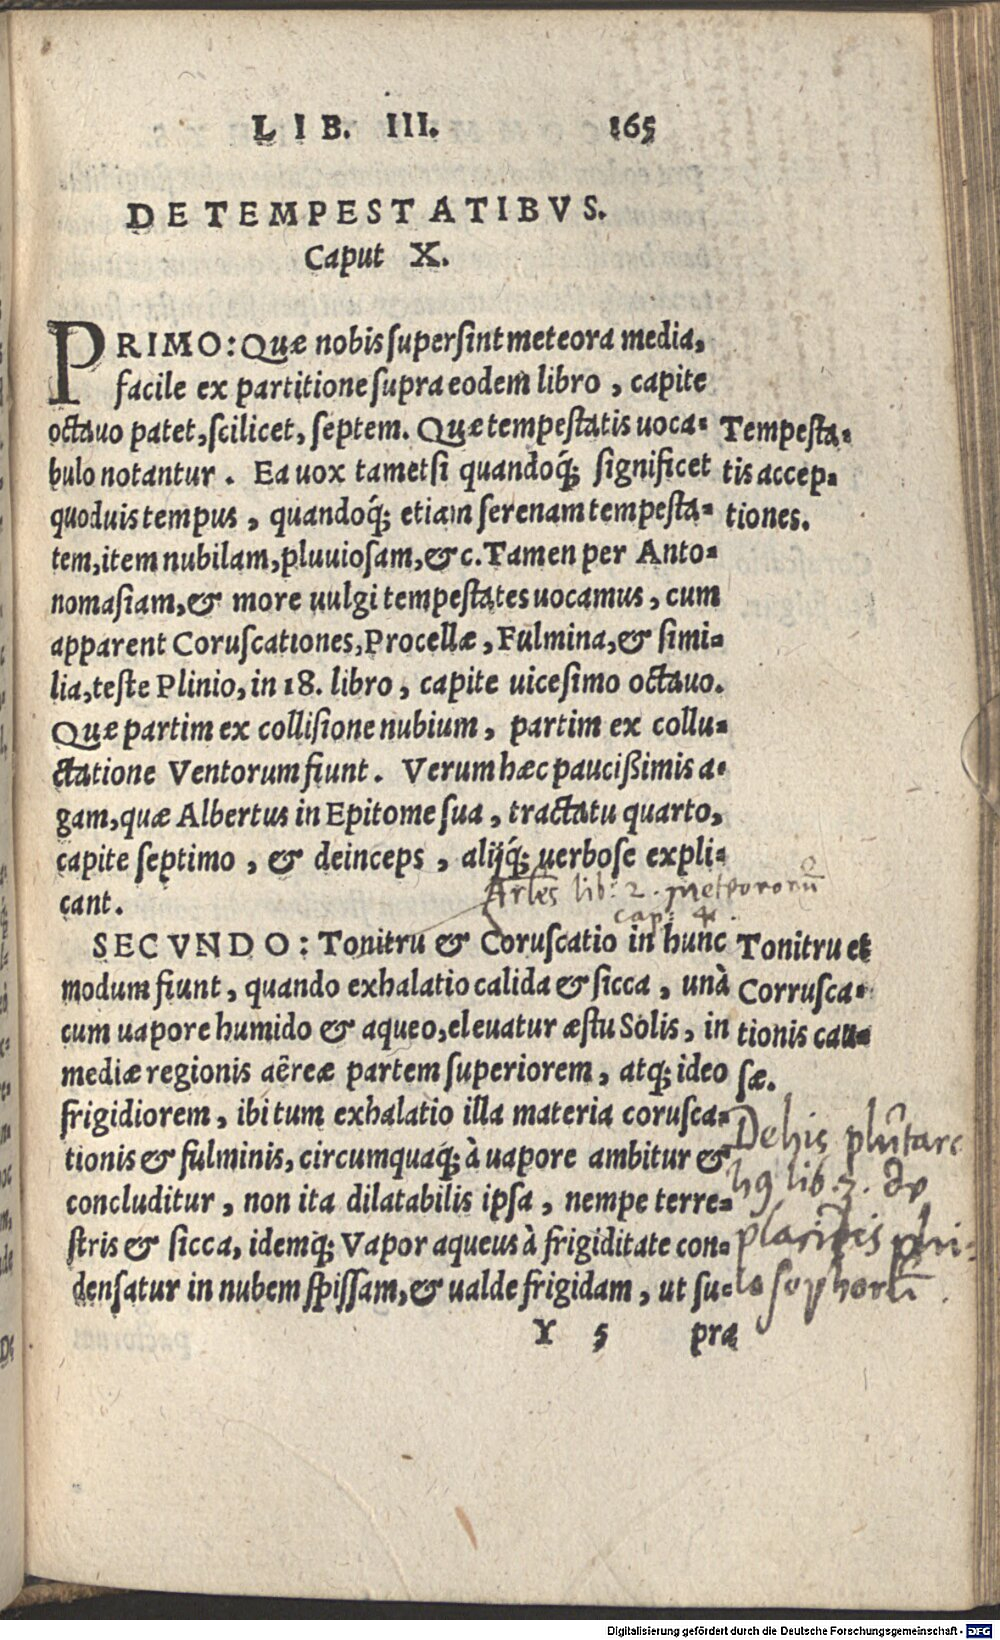 LIB. III. 165
DE TEMPESTATIBVS.
Caput X.
PRIMO: Quæ nobis supersint meteora media,
facile ex partitione supra eodem libro, capite
octauo patet, scilicet, septem. Quæ tempestatis uoca-
bulo notantur. Ea uox tametsi quandoq́; significet
quoduis tempus, quandoq́; etiam serenam tempesta-
tem, item nubilam, pluuiosam, &c. Tamen per Anto-
nomasiam, & more uulgi tempestates uocamus, cum
apparent Coruscationes, Procellæ, Fulmina, & simi-
lia, teste Plinio, in 18. libro, capite uicesimo octauo.
Quæ partim ex collisione nubium, partim ex collu-
ctatione Ventorum fiunt. Verum hæc paucißimis a-
gam, quæ Albertus in Epitome sua, tractatu quarto,
capite septimo, & deinceps, alijq́; uerbose expli-
cant.
Tempesta-
tis accep-
tiones.
Arles lib: 2. meteororũ
cap: 4.
SECVNDO: Tonitru & Coruscatio in hunc
modum fiunt, quando exhalatio calida & sicca, unà
cum uapore humido & aqueo, eleuatur æstu Solis, in
mediæ regionis aëreæ partem superiorem, atq; ideo
frigidiorem, ibi tum exhalatio illa materia corusca-
tionis & fulminis, circumquaq; à uapore ambitur &
concluditur, non ita dilatabilis ipsa, nempe terre-
stris & sicca, idemq; Vapor aqueus à frigiditate con-
densatur in nubem spissam, & ualde frigidam, ut su-
Tonitru et
Corrusca-
tionis cau-
sæ.
De his plutarc
hꝯ lib. 3. de
placitis phi-
losophorũ.
Y 5 pra
Digitalisierung gefördert durch die Deutsche Forschungsgemeinschaft - DFG